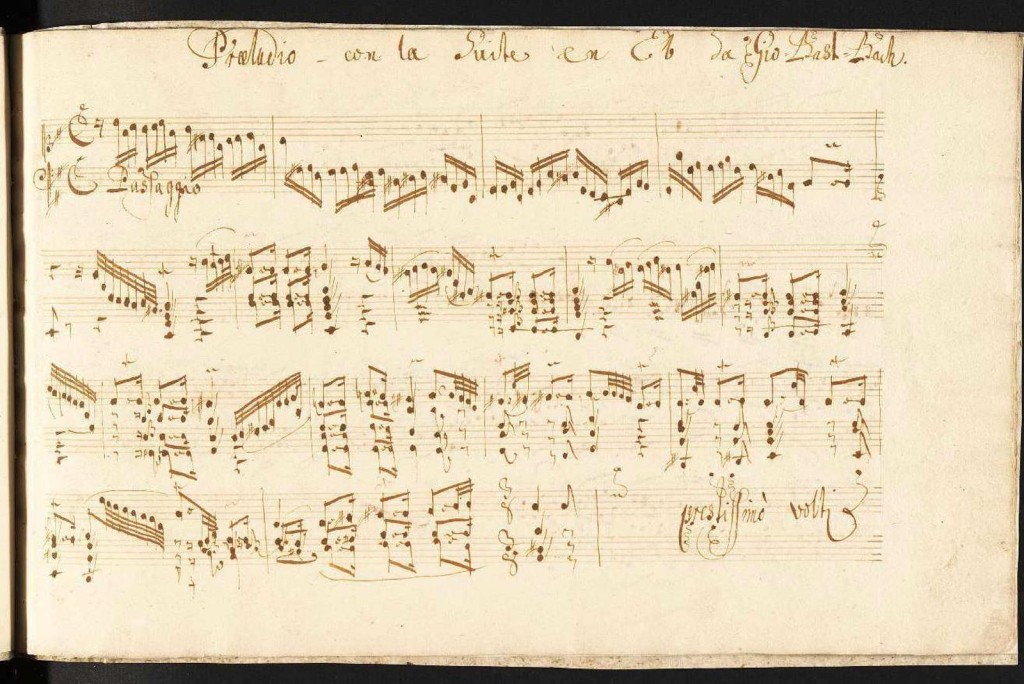 Præludio - con la Suite en Eb da Gio. Bast. Bach.
Passaggio
prestissimè volti